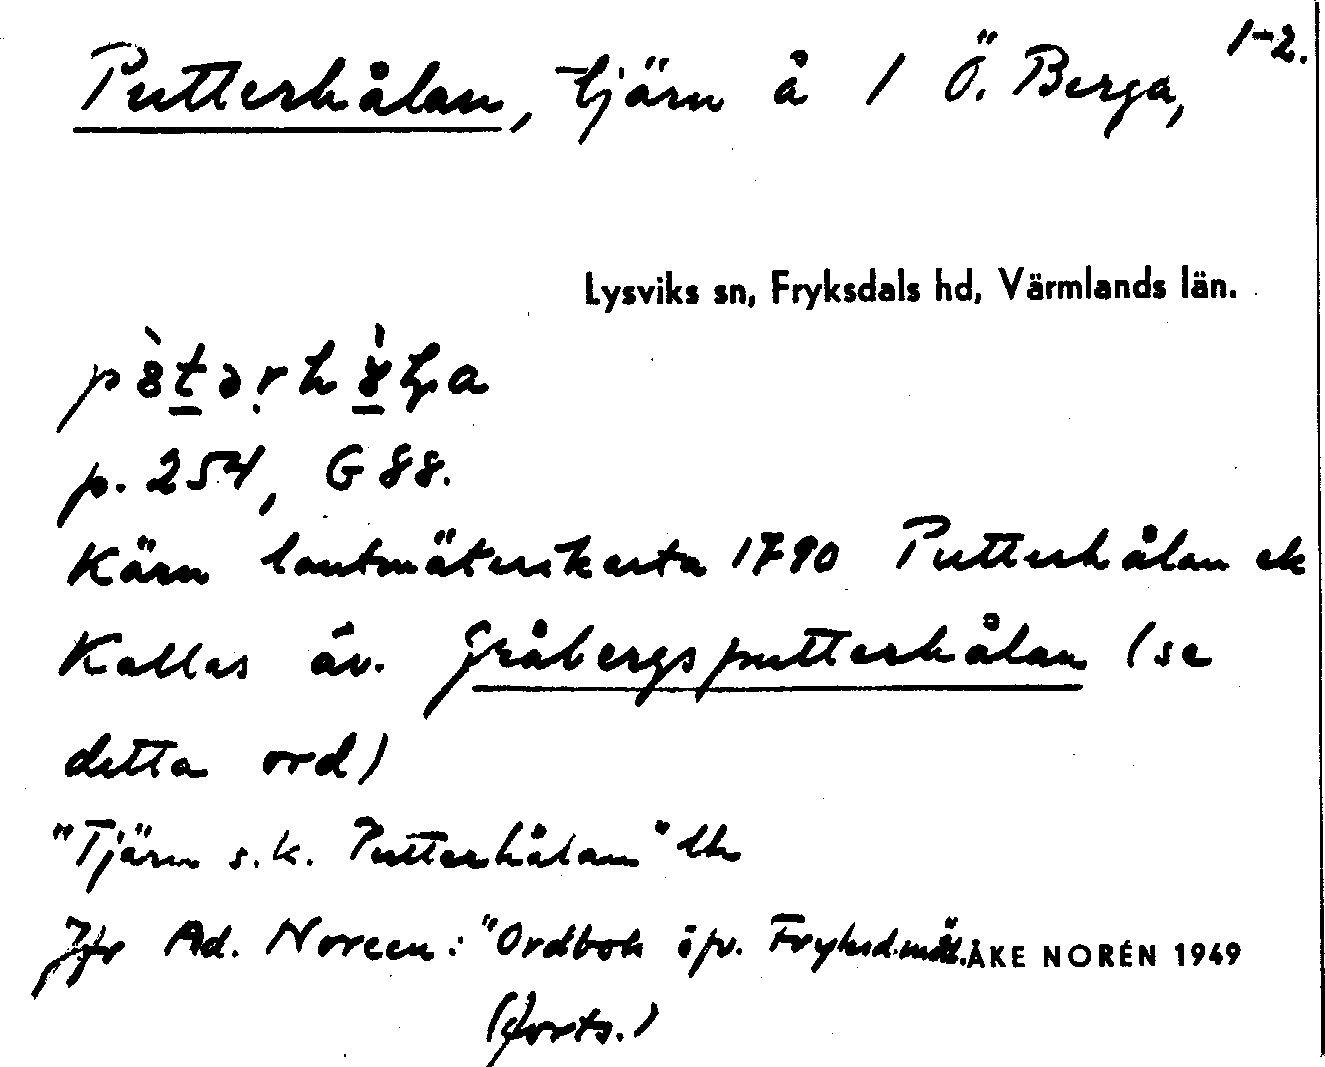 1-2.
Putterhålan, tjärn å 1 Ö. Berga,
Lysviks sn, Fryksdals hd, Värmlands län.
p. 254, G 88.
Kärn lantmäterikarta 1790 Putterhålan ek
Kallas äv. Gråbergsputterhålan (se
detta ord)
"Tjärn s.k. Putterhålan" lh
Jfr Ad. Noreen: "Ordbok öfv. Fryksd.mål.
ÅKE NORÉN 1949
(forts.)